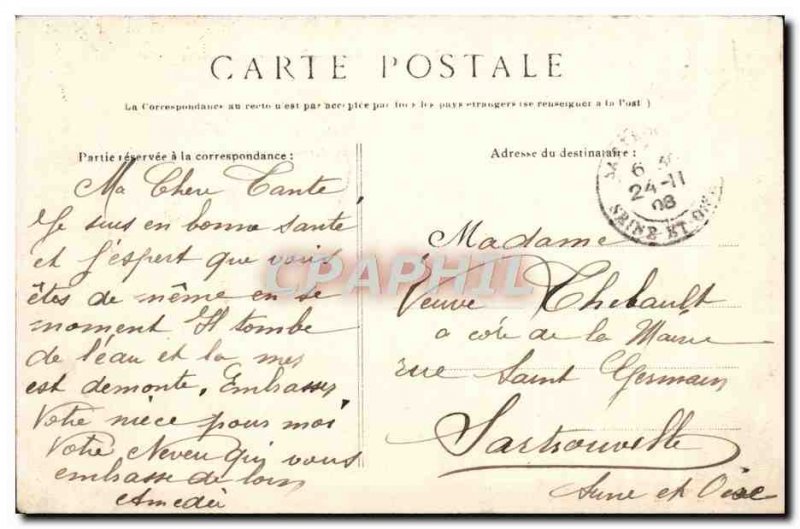 CARTE POSTALE
La Correspondance au recto n'est pas acceptée par tous les pays étrangers (se renseigner à la Post)
Partie réservée à la correspondance :
Ma Chere Tante
Je suis en bonne santé
et j'espert que vous
êtes de même en se
moment Il tombe
de l'eau et la mer
est demonté. Embrasser
Votre nièce pour moi
Votre Neveu qui vous
embrasse de loin
Amedée
Adresse du destinataire :
6
24-11
08
SEINE-ET-OISE
Madame
Veuve Thebault
a côté de la Mairie
rue Saint Germain
Sartrouville
Seine et Oise
CPAPHIL